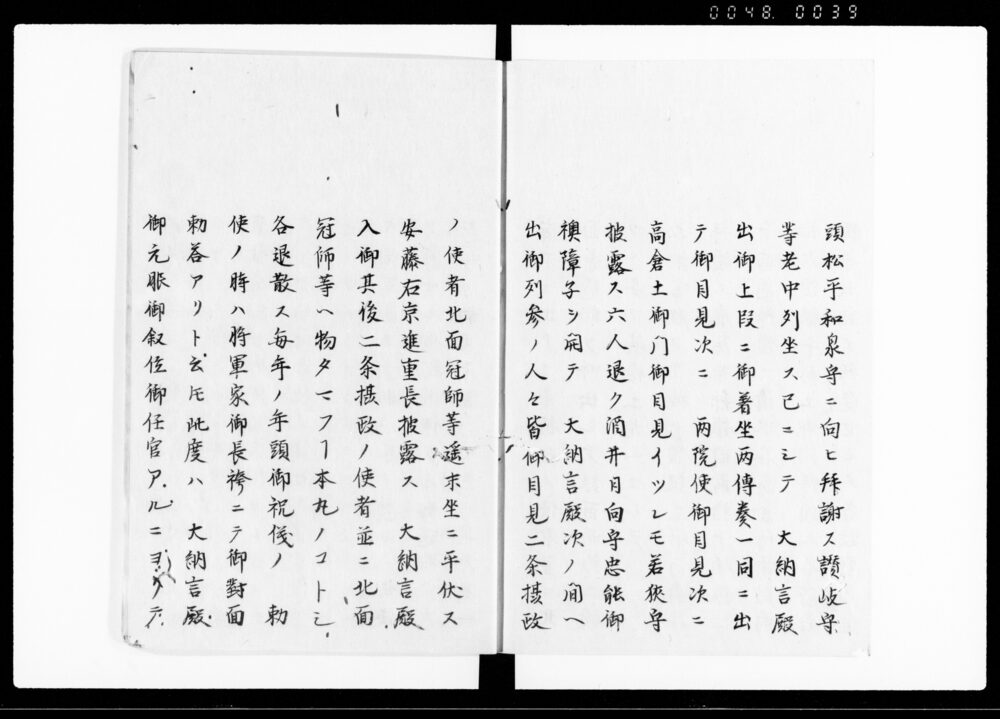 0048. 0039
頭松平和泉守ニ向ヒ拜謝ス讃岐守
等老中列坐ス已ニシテ　大納言殿
出御上段ニ御著坐両傳奏一同ニ出
テ御目見次ニ　両院使御目見次ニ
高倉土御门御目見イツレモ若狹守
披露ス六人退ク酒井日向守忠能御
襖障子ヲ開テ　大納言殿次ノ间ヘ
出御列參ノ人々皆御目見二条摂政
ノ使者北面冠師等遥末坐ニ平伏ス
安藤右京進重長披露ス　大納言殿
入御其後二条摂政ノ使者並ニ北面
冠師等ヘ物タマフヿ本丸ノコトシ
各退散ス毎年ノ年頭御祝儀ノ　勅
使ノ時ハ將軍家御長袴ニテ御對面
勅答アリト云𪜈此度ハ　大納言殿
御元服御叙位御任官アルニヨリテ